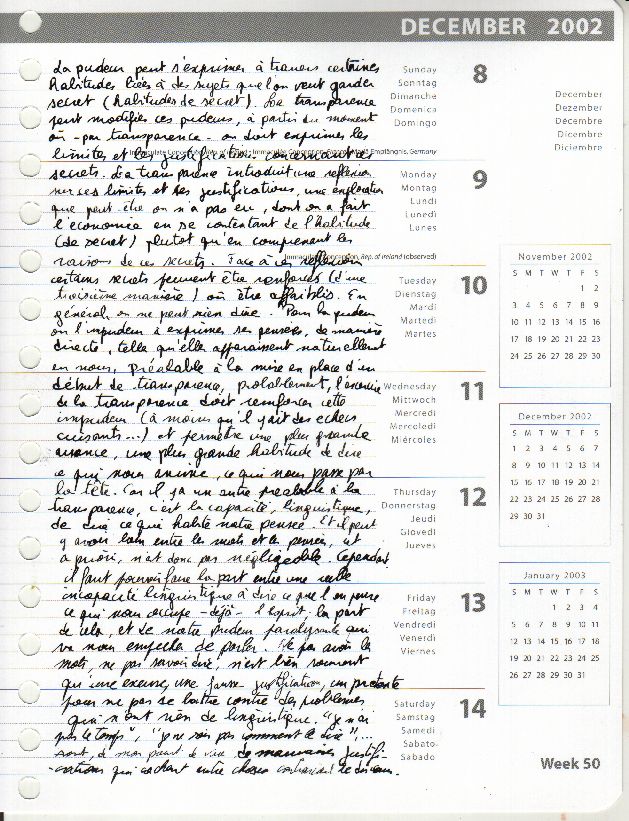 DECEMBER 2002
La pudeur peut s'exprimer à travers certaines
habitudes liées à des sujets que l'on veut garder
secret (habitudes de secret). La transparence
peut modifier ces pudeurs, à partir du moment
où - par transparence - on doit exprimer les
limites et les justifications concernant les
secrets. La transparence introduit une réflexion
sur ces limites et ses justifications, une exploration
que peut-être on n'a pas eu, dont on a fait
l'économie en se contentant de l'habitude
(de secret) plutôt qu'en comprenant les
raisons de ces secrets. Face à ces réflexion
certains secrets peuvent être renforcés (d'une
troisième manière) où être affaiblis. En
général on ne peut rien dire. Pour la pudeur
ou l'impudeur à exprimer ses pensées, de manière
directe, telle qu'elle apparaissent naturellement
en nous, préalable à la mise en place d'un
début de transparence, probablement, l'exercice
de la transparence doit renforcer cette
impudeur (à moins qu'il y ait des echecs
cuisants...) et permettre une plus grande
aisance, une plus grande habitude de dire
ce qui nous anime, ce qui nous passe par
la tête. Car il y a un autre préalable à la
transparence, c'est la capacité, linguistique,
de dire ce qui habite notre pensée. Et il peut
y avoir loin entre les mots et la pensée, et
a priori, n'est donc pas négligeable. Cependant
il faut pouvoir faire la part entre une réelle
incapacité linguistique à dire ce que l'on pense
ce qui nous occupe - déjà - l'esprit. la part
de cela, et de notre pudeur paralysante qui
va nous empêcher de parler. Ne pas avoir les
mots, ne pas savoir dire, n'est bien souvent
qu'une excuse, une fausse justification, un prétexte
pour ne pas se battre contre des problèmes
qui n'ont rien de linguistique. "je n'ai
pas le temps", "je ne sais pas comment le dire",...
sont, à mon point de vue de mauvaises justifi-
-cations qui cachent entre choses
Immaculate Conception, Rep. of
Empfängnis, Germany
Immaculate Conception, Rep. of Ireland (observed)
Sunday 8
Sonntag
Dimanche
Domenica
Domingo
Monday 9
Montag
Lundi
Lunedì
Lunes
Tuesday 10
Dienstag
Mardi
Martedì
Martes
Wednesday 11
Mittwoch
Mercredi
Mercoledì
Miércoles
Thursday 12
Donnerstag
Jeudi
Giovedì
Jueves
Friday 13
Freitag
Vendredi
Venerdì
Viernes
Saturday 14
Samstag
Samedi
Sabato
Sábado
December
Dezember
Décembre
Dicembre
Diciembre
November 2002
S M T W T F S
1 2
3 4 5 6 7 8 9
10 11 12 13 14 15 16
17 18 19 20 21 22 23
24 25 26 27 28 29 30
December 2002
S M T W T F S
1 2 3 4 5 6 7
8 9 10 11 12 13 14
15 16 17 18 19 20 21
22 23 24 25 26 27 28
29 30 31
January 2003
S M T W T F S
1 2 3 4
5 6 7 8 9 10 11
12 13 14 15 16 17 18
19 20 21 22 23 24 25
26 27 28 29 30 31
Week 50